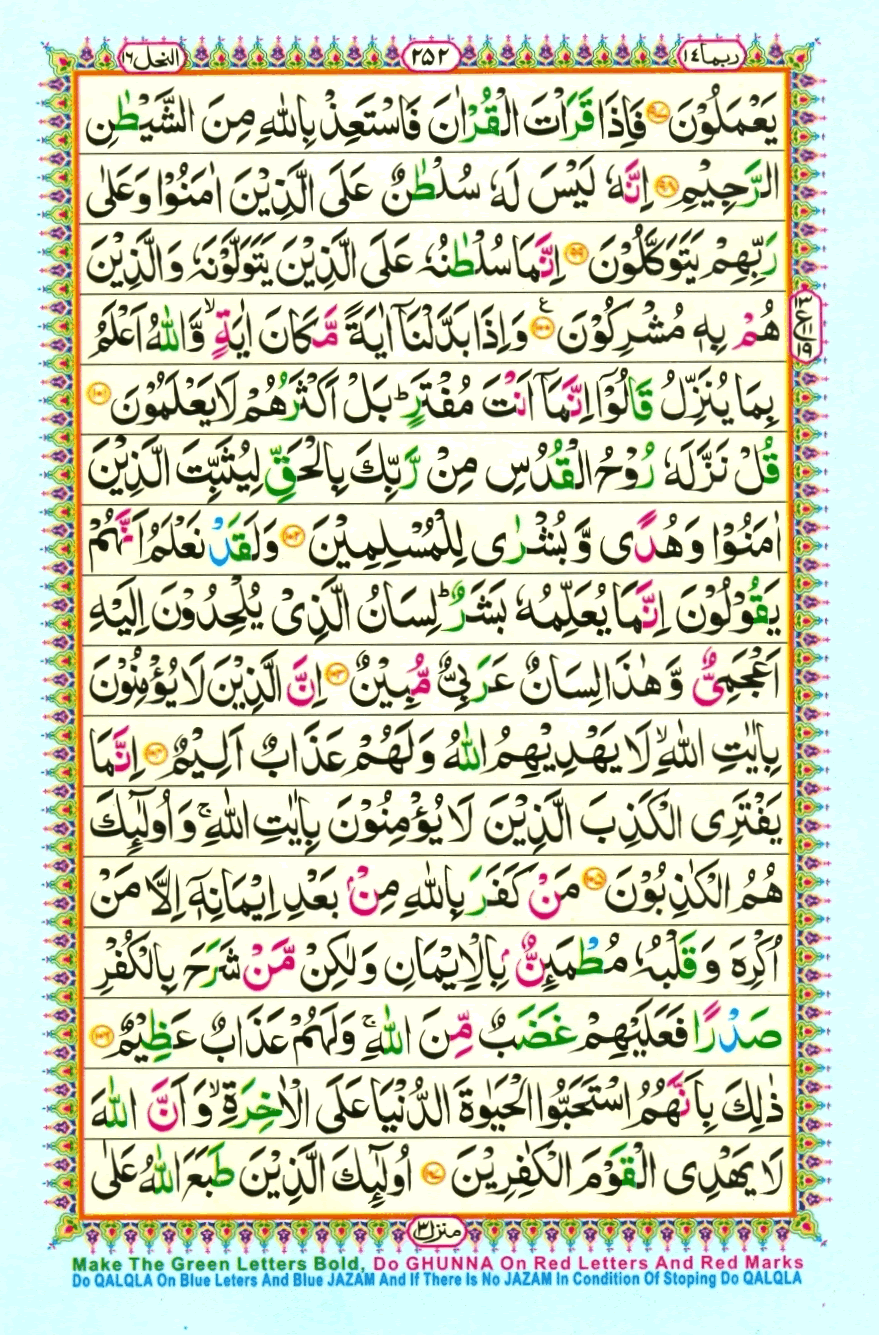 ربما ۱۴
۲۵۲
النحل ۱۶
يَعْمَلُوْنَ ۹۷ فَاِذَا قَرَاْتَ الْقُرْاٰنَ فَاسْتَعِذْ بِاللّٰهِ مِنَ الشَّيْطٰنِ
الرَّجِيْمِ ۹۸ اِنَّهٗ لَيْسَ لَهٗ سُلْطٰنٌ عَلَى الَّذِيْنَ اٰمَنُوْا وَعَلٰى
رَبِّهِمْ يَتَوَكَّلُوْنَ ۹۹ اِنَّمَا سُلْطٰنُهٗ عَلَى الَّذِيْنَ يَتَوَلَّوْنَهٗ وَالَّذِيْنَ
هُمْ بِهٖ مُشْرِكُوْنَ ۱۰۰ ع وَاِذَا بَدَّلْنَاۤ اٰيَةً مَّكَانَ اٰيَةٍ ۙ وَّاللّٰهُ اَعْلَمُ
بِمَا يُنَزِّلُ قَالُوْۤا اِنَّمَاۤ اَنْتَ مُفْتَرٍ ؕ بَلْ اَكْثَرُهُمْ لَا يَعْلَمُوْنَ ۱۰۱
قُلْ نَزَّلَهٗ رُوْحُ الْقُدُسِ مِنْ رَّبِّكَ بِالْحَقِّ لِيُثَبِّتَ الَّذِيْنَ
اٰمَنُوْا وَهُدًى وَّبُشْرٰى لِلْمُسْلِمِيْنَ ۱۰۲ وَلَقَدْ نَعْلَمُ اَنَّهُمْ
يَقُوْلُوْنَ اِنَّمَا يُعَلِّمُهٗ بَشَرٌ ؕ لِسَانُ الَّذِيْ يُلْحِدُوْنَ اِلَيْهِ
اَعْجَمِيٌّ وَّهٰذَا لِسَانٌ عَرَبِيٌّ مُّبِيْنٌ ۱۰۳ اِنَّ الَّذِيْنَ لَا يُؤْمِنُوْنَ
بِاٰيٰتِ اللّٰهِ ۙ لَا يَهْدِيْهِمُ اللّٰهُ وَلَهُمْ عَذَابٌ اَلِيْمٌ ۱۰۴ اِنَّمَا
يَفْتَرِى الْكَذِبَ الَّذِيْنَ لَا يُؤْمِنُوْنَ بِاٰيٰتِ اللّٰهِ ۚ وَاُولٰٓئِكَ
هُمُ الْكٰذِبُوْنَ ۱۰۵ مَنْ كَفَرَ بِاللّٰهِ مِنْۢ بَعْدِ اِيْمَانِهٖۤ اِلَّا مَنْ
اُكْرِهَ وَقَلْبُهٗ مُطْمَئِنٌّۢ بِالْاِيْمَانِ وَلٰكِنْ مَّنْ شَرَحَ بِالْكُفْرِ
صَدْرًا فَعَلَيْهِمْ غَضَبٌ مِّنَ اللّٰهِ ۚ وَلَهُمْ عَذَابٌ عَظِيْمٌ ۱۰۶
ذٰلِكَ بِاَنَّهُمُ اسْتَحَبُّوا الْحَيٰوةَ الدُّنْيَا عَلَى الْاٰخِرَةِ ۙ وَاَنَّ اللّٰهَ
لَا يَهْدِى الْقَوْمَ الْكٰفِرِيْنَ ۱۰۷ اُولٰٓئِكَ الَّذِيْنَ طَبَعَ اللّٰهُ عَلٰى
منزل ۳
Make The Green Letters Bold, Do GHUNNA On Red Letters And Red Marks
Do QALQLA On Blue Leters And Blue JAZAM And If There Is No JAZAM In Condition Of Stoping Do QALQLA